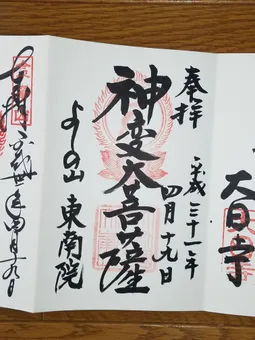 大日寺
奉拝
平成三十一年
四月十九日
神変大菩薩
よしの山 東南院
平成卅一年四月十九日